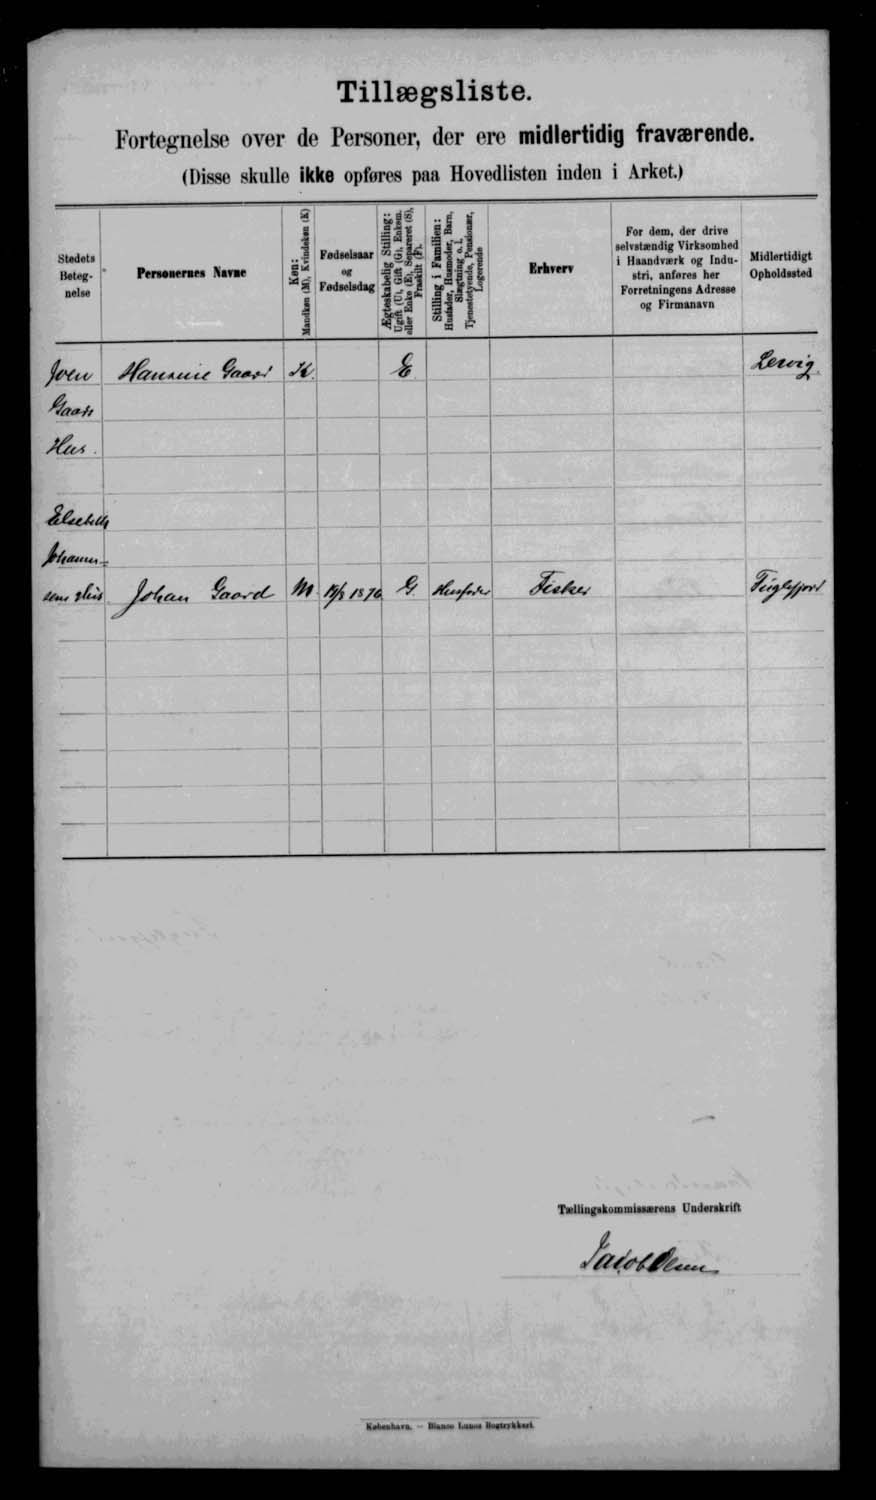 Tillægsliste.
Fortegnelse over de Personer, der ere midlertidig fraværende.
(Disse skulle ikke opføres paa Hovedlisten inden i Arket.)
Stedets
Beteg-
nelse
Personernes Navne
Køn:
Mandkøn (M), Kvindekøn (K)
Fødselsaar
og
Fødselsdag
Ægteskabelig Stilling:
Ugift (U), Gift (G), Enkem.
eller Enke (E), Separeret (S),
Fraskilt (F).
Stilling i Familien:
Husfader, Husmoder, Barn,
Slægtning o. l.
Tjenestetyende, Pensionær,
Logerende
Erhverv
For dem, der drive
selvstændig Virksomhed
i Haandværk og Indu-
stri, anføres her
Forretningens Adresse
og Firmanavn
Midlertidigt
Opholdssted
Joen Hansine Gaard K. E. Lervig.
Gaards
Hus.
Elsebeth
Johannes-
sens Hus Johan Gaard M. 1876 G. Husfader Fisker Fuglefjord
Tællingskommissærens Underskrift
Jacob Olsen
København. — Bianco Lunos Bogtrykkeri.